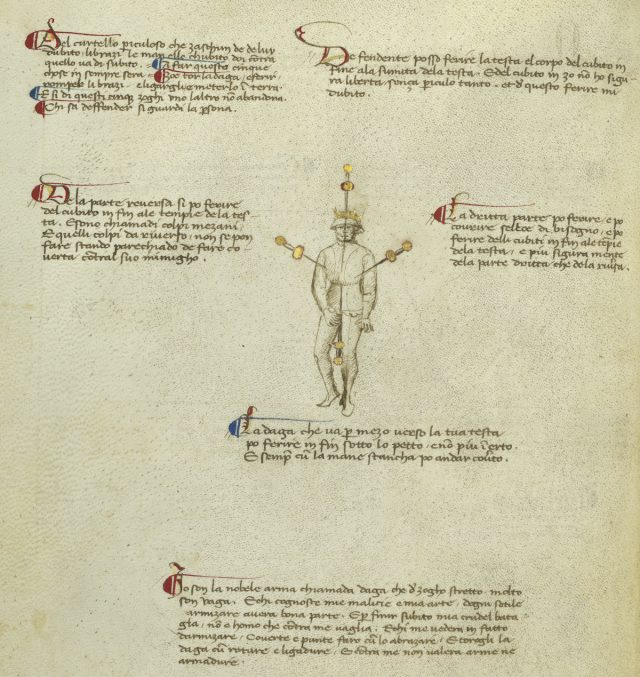 Del cortello piculoso che zaschun de de luy
dubito. li brazi. le man. elle chubito doi contra
quello va di subito. A far questo cinque
chose in sempre sera. Zoe tor la daga, e ferir,
rompelo li brazi. e ligargli e meterlo in terra.
E si di questi cinque zoghi uno laltro non abandona.
Chi sa deffender si guardi la persona.
De fendente posso ferire la testa el corpo del cubito in
fine ala sumita dela testa. E del cubito in zo no ho sigu-
ra libertà sença piculo tanto. et d questo ferire mi
dubito.
De la parte reversa si po ferire
del cubito in fin ale tempie de la tes-
ta. E sono chiamadi colpi mezani.
E quelli colpi da riverso, non se pon
fare stando parechiado de fare co-
verta contra l suo inimigho.
La dritta parte po ferire, e po
courire se lle de bisogno, e po
ferire delli cubiti in fin ale tepie
dela testa, e piu sigura mente
dela parte dritta che de la riversa.
La daga che va p mezo verso la tua testa
po ferire in fin sotto lo petto. e no piu in erto.
E semp cu la mane stancha po andar covto.
Io son la nobele arma chiamada daga che d zogho stretto, molto
son vaga. E chi cognosce mie malicie e mia arte, d ogni sotile
armizare avera bona parte. E p finir subito mia crudel bata-
glia, no e homo che contra me vaglia. E chi me vedera in fatto
darmizare, Coverte e punte faro cu lo abrazare. E torogli la
daga cu roture e ligadure. E contra me non valera arme ne
armadure.